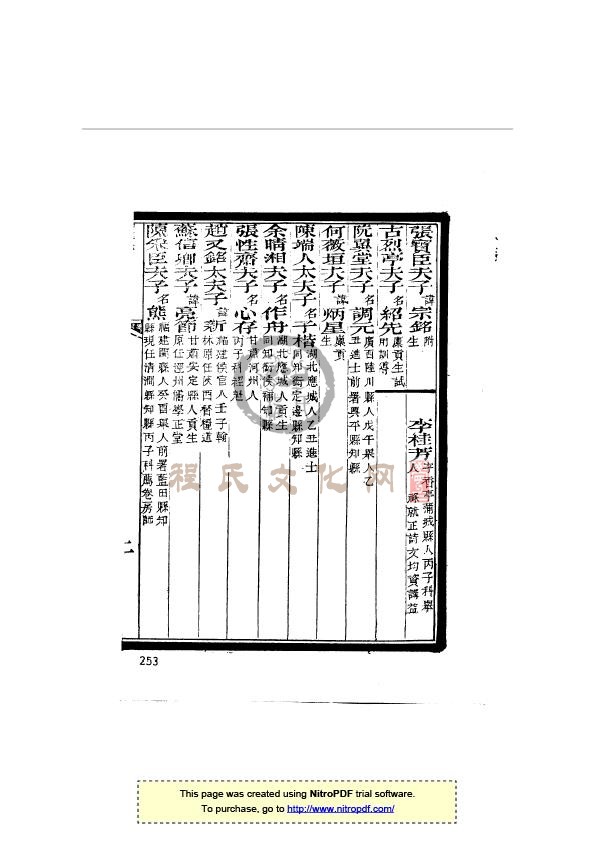 張寶臣夫子諱宗銘附生
李桂芳字香亭蒲城縣人丙子科舉人 就正詩文均資講益
古烈亭夫子名紹先廩貢生試用訓導
阮巽堂夫子名調元廣西陸川縣人戊午舉人乙丑進士前署興平縣知縣
何薇垣夫子諱炳星廩貢生
陳瑞人太夫子名子楷湖北應城人乙丑進士同知銜定邊縣知縣
余晴湘夫子名作舟湖北應城人貢生同知銜候補知縣
張性齋夫子名心存甘肅河州人丙子科經魁
趙又銘太夫子諱新福建侯官人壬子翰林原任陝西督糧道
蘇信卿夫子諱亮節甘肅安定縣人貢生原任涇州儒學正堂
陳象臣夫子名熊福建閩縣人癸酉舉人前署藍田縣知縣現任清澗縣知縣丙子科薦卷房師
二
程氏文化网
253
This page was created using NitroPDF trial software.
To purchase, go to http://www.nitropdf.com/